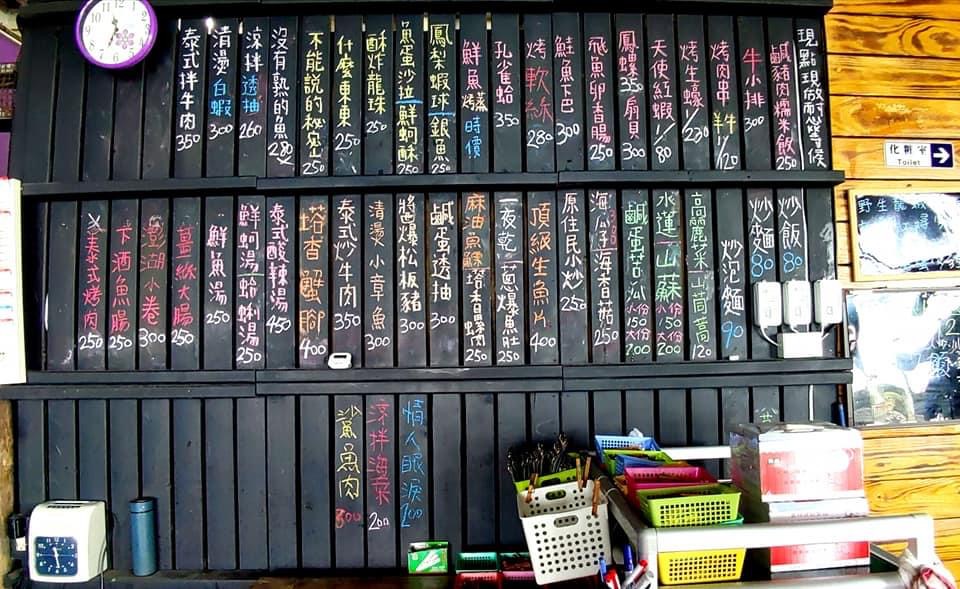 現點現做而您等候
鹹豬肉糯米飯 250
牛小排 300
烤肉串 羊牛 1/120
烤生蠔 1/230
天使紅蝦 1/80
鳳螺 350 扇貝 300
飛魚卵香腸 250
鮭魚下巴 300
烤軟絲 280
孔雀蛤 350
鮮魚 烤蒸 時價
鳳梨蝦球 銀魚 250
魚蛋沙拉 鮮蚵酥 250
酥炸龍珠 250
什麼東東 250
不能說的秘密 250
沒有熟的魚 280
涼拌透抽 260
清燙白蝦 300
泰式拌牛肉 350
炒飯 80
炒麵 80
炒泡麵 90
高麗菜 山茼蒿 120
水蓮 山蘇 小份150 大份200
鹹蛋苦瓜 小份150 大份200
海瓜子 海香菇 250
原住民小炒 250
頂級生魚片 400
一夜乾 蔥爆魚肚 250
麻油魚鰾 塔香螺肉 250
鹹蛋透抽 300
醬爆松板豬 300
清燙小章魚 300
泰式炒牛肉 350
塔香蟹腳 400
泰式酸辣湯 450
鮮蚵湯 蛤蜊湯 250
鮮魚湯 250
薑絲大腸 250
澎湖小卷 300
卞酒魚腸 250
泰式烤肉 250
情人眼淚 200
涼拌海菜 200
鯊魚肉 300
化粧室
Toilet